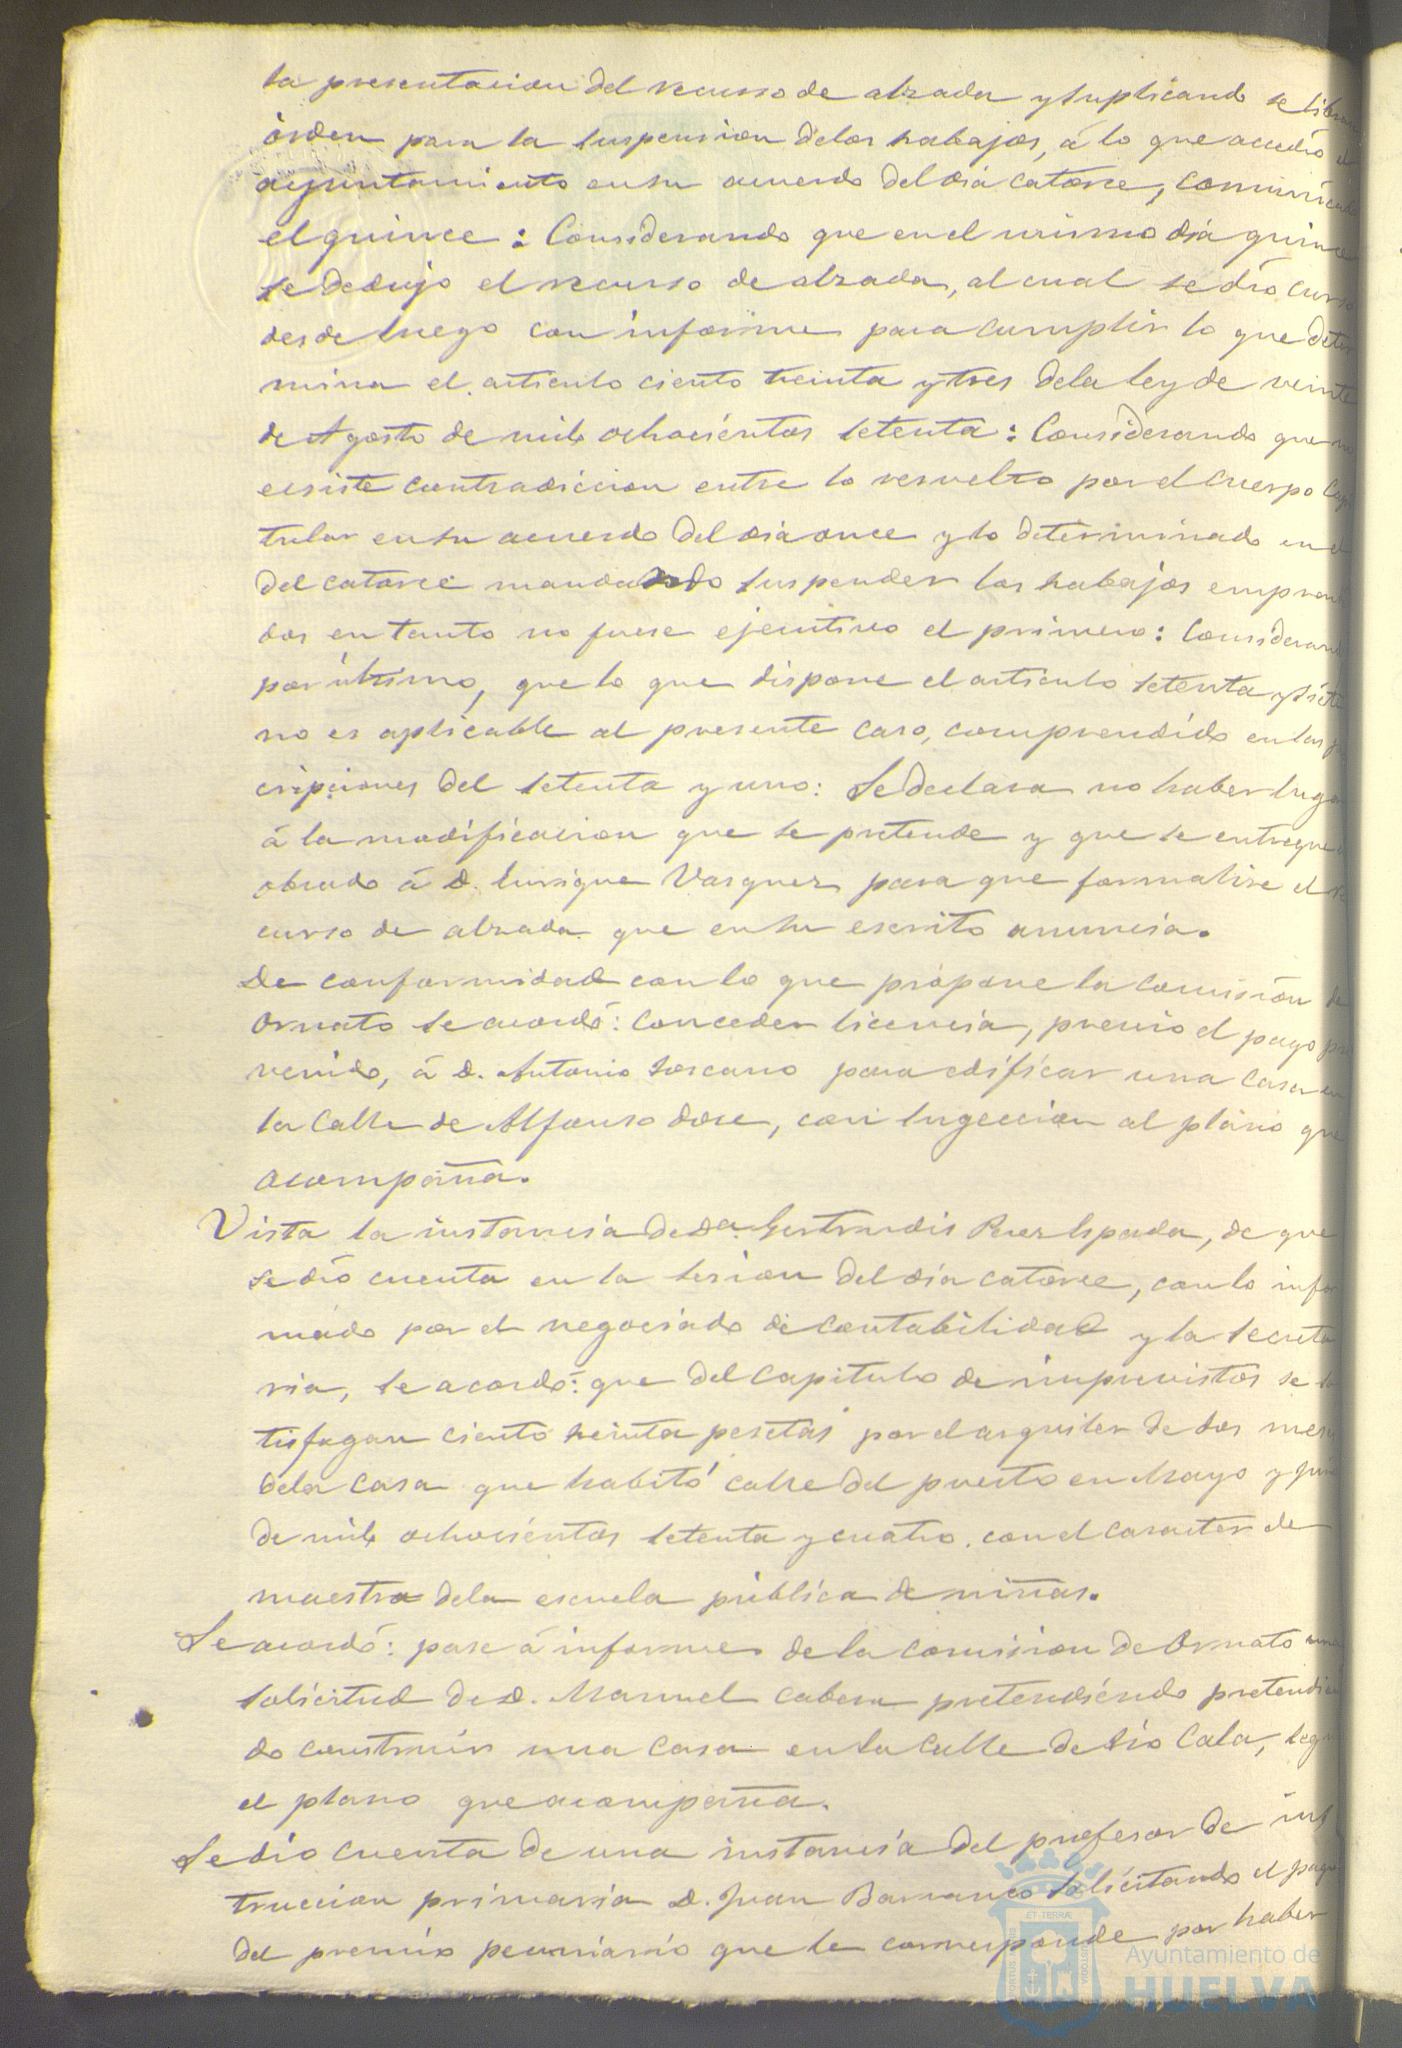 la presentacion del recurso de alzada y suplicando se
órden para la suspension de los trabajos, á lo que accedió el
ayuntamiento en su acuerdo del dia catorce, comunicado
el quince: Considerando que en el mismo dia quince
se dedujo el recurso de alzada, al cual se dió curso
desde luego con informe para cumplir lo que deter
mina el articulo ciento treinta y tres de la ley de veinte
de Agosto de mil ochocientos setenta: Considerando que no
ecsiste contradiccion entre lo resuelto por el Cuerpo Capi
tular en su acuerdo del dia once y lo determinado en el
del catorce mandando suspender los trabajos empren
dos en tanto no fuese ejecutivo el primero: Considerando
por último, que lo que dispone el articulo setenta y siete
no es aplicable al presente caso, comprendido en las
cripciones del setenta y uno: Se declara no haber lugar
á la modificacion que se pretende y que se entregue
obrado á D. Enrique Vazquez para que formalice el re
curso de alzada que en su escrito anuncia.
De conformidad con lo que propone la Comisión de
Ornato se acordó: conceder licencia, previo el pago pre
venido, á D. Antonio Toscano para edificar una casa en
la calle de Alfonso doce, con sugeccion al plano que
acompaña.
Vista la instancia de Dª. Gertrudis Perez Espada, de que
se dió cuenta en la sesion del dia catorce, con lo infor
mado por el negociado de Contabilidad y la Secreta
ria, se acordó: que del Capitulo de imprevistos se sa
tisfagan ciento treinta pesetas por el arquiler de dos meses
de la casa que habitó calle del puerto en Mayo y Junio
de mil ochocientos setenta y cuatro con el caracter de
maestra de la escuela pública de niñas.
Se acordó: pase á informe de la Comision de Ornato una
solicitud de D. Manuel Cabera pretendiéndo pretendién
do construir una casa en la Calle de Tio Cala, segun
el plano que acompaña.
Se dió cuenta de una instancia del profesor de ins
truccion primaria D. Juan Barranco solicitando el pago
del premio pecuniario que le corresponde por haber
PORTUS MARIS
ET TERRÆ
CUSTODIA
Ayuntamiento de
HUELVA